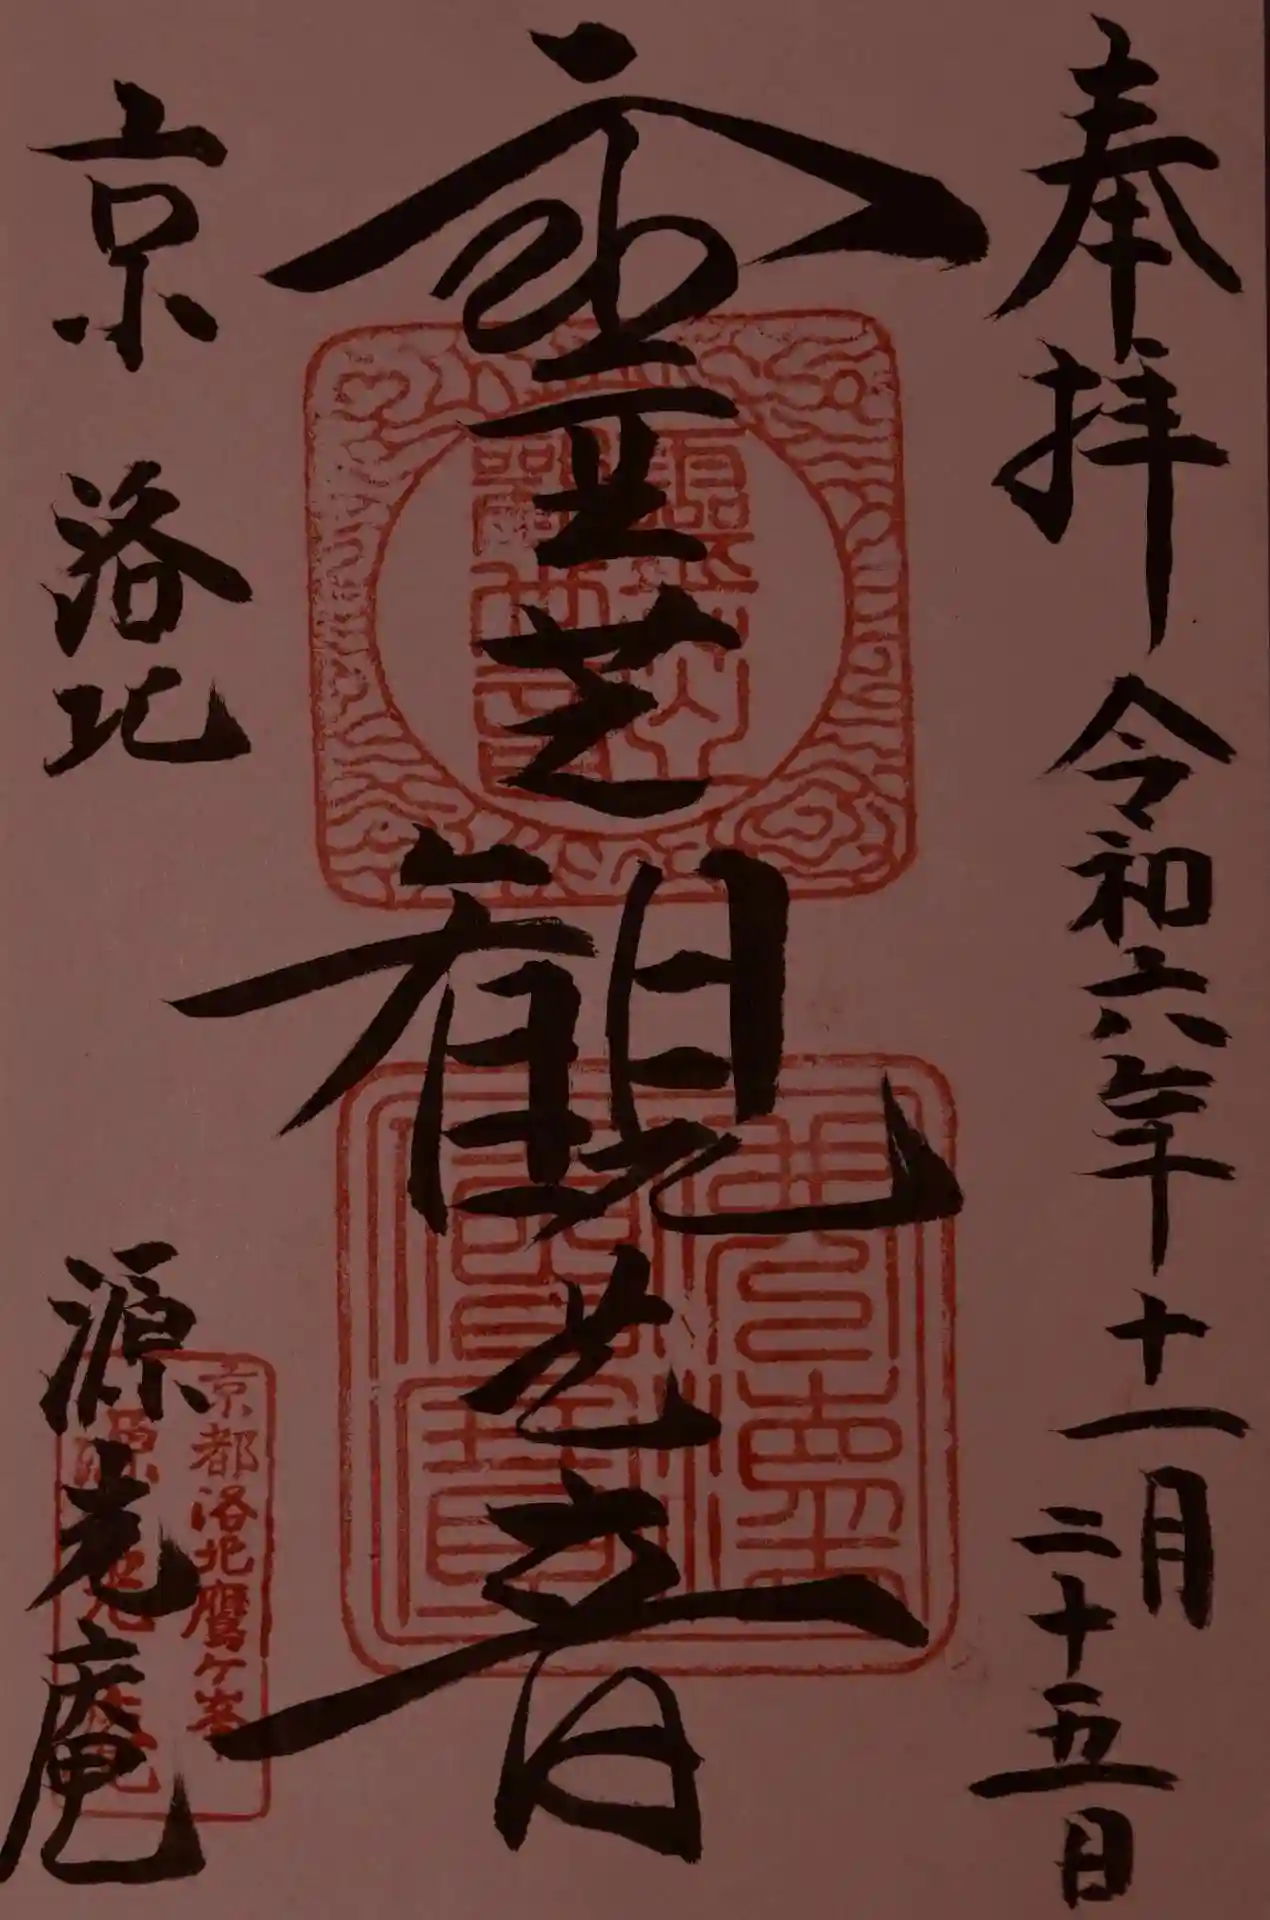 奉拝 令和六年十一月二十五日
霊芝観世音
京 洛北 源光庵
京都洛北鷹ケ峯
源光庵